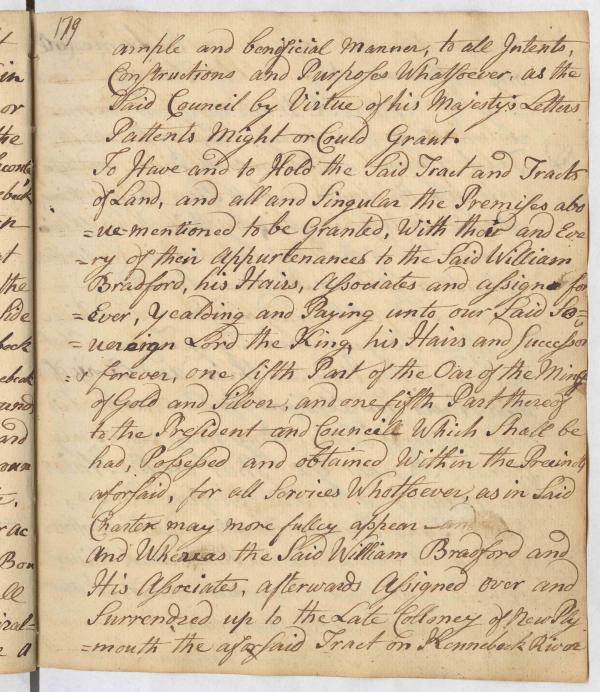 179
ample and beneficial Manner, to all Intents,
Constructions and Purposes Whatsoever, as the
Said Council by Virtue of his Majestys Letters
Pattents Might or Could Grant.
To Have and to Hold the Said Tract and Tracts
of Land, and all and Singular the Premises abo
=ve-mentioned to be Granted, With their and Eve
=ry of their Appurtenances to the Said William
Bradford, his Hairs, Associates and assigns for
=Ever, Yealding and Paying unto our Said So=
=vereign Lord the King, his Hairs and Successor
forever, one fifth Part of the Oar of the Mines
of Gold and Silver, and one fifth Part thereof
to the President and Councill Which Shall be
had, Possesed and obtained Within the Precincts
aforsaid, for all Services Whotsoever, as in Said
Charter may more fulley appear - and
And Whereas the Said William Bradford and
His Associates, afterwards Assigned over and
Surrendred up to the Late Colloney of New Ply
=mouth the aforsaid Tract on Kennebeck River
in
or
the
beck
at
the
side
beck
and
ll
a